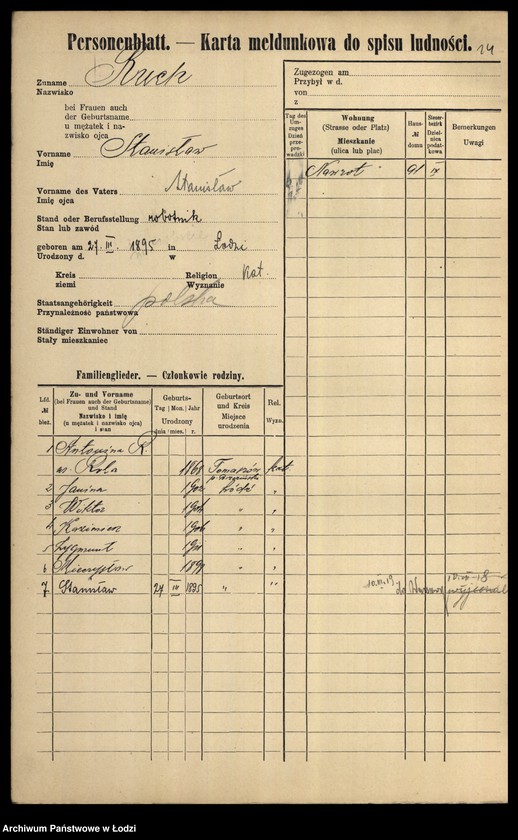 Personenblatt. — Karta meldunkowa do spisu ludności.
14
Zuname Kruck
Nazwisko
bei Frauen auch
der Geburtsname
u mężatek i na-
zwisko ojca
Vorname Stanisław
Imię
Vorname des Vaters Stanisław
Imię ojca
Stand oder Berufsstellung robotnik
Stan lub zawód
geboren am 27. III. 1895 in Łodzi
Urodzony d. w
Kreis Religion Kat.
ziemi Wyznanie
Staatsangehörigkeit polska
Przynależność państwowa
Ständiger Einwohner von
Stały mieszkaniec
Zugezogen am
Przybył w d.
von
z
Tag des Um-zuges Dzień prze-prowadzki
Wohnung
(Strasse oder Platz)
Mieszkanie
(ulica lub plac)
Haus-
№
domu
Steuer-bezirk
Dzielnica podat-kowa
Bemerkungen
Uwagi
Nawrot 91 IX
Familienglieder. — Członkowie rodziny.
Lfd.
№
bież.
Zu- und Vorname
(bei Frauen auch der Geburtsname)
und Stand
Nazwisko i imię
(u mężatek i nazwisko ojca)
i stan
Geburts-
Tag Mon. Jahr
Urodzony
dnia mies. r.
Geburtsort
und Kreis
Miejsce
urodzenia
Rel.
Wyzn.
1 Antonina K.
Rola 1868 Tomaszów kat.
2 Janina 1902 Łódź "
3 Wiktor 1904 " "
4 Kazimierz 1906 " "
5 Zygmunt 1911 " "
6 Mieczysław 1891 " "
7. Stanisław 27 III 1895 " "
Archiwum Państwowe w Łodzi